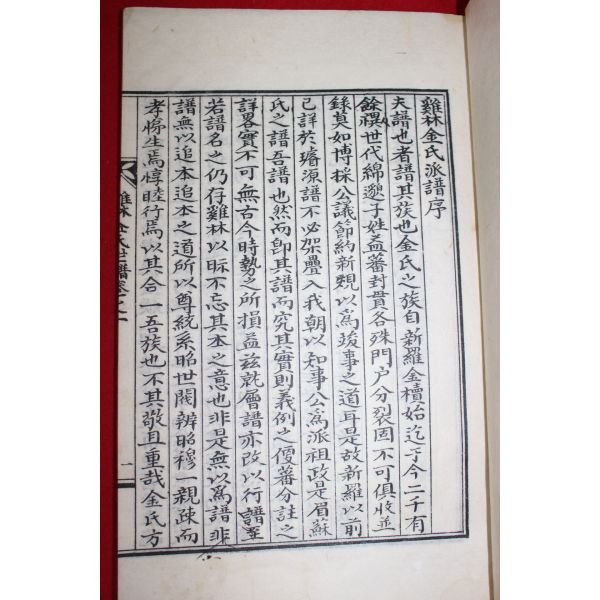 雞林金氏派譜序
夫譜也者譜其族也金氏之族自新羅金櫝始迄于今二千有
餘禩世代綿邈子姓益蕃封貫各殊門户分裂固不可俱收並
錄莫如博採公議節約新規以爲竣事之道耳是故新羅以前
已詳於璿源譜不必架疊入我朝以知事公爲派祖政是眉蘇
氏之譜吾譜也然而卽其譜而究其實則義例之優蕃分註之
詳畧實不可無古今時勢之所損益兹就層譜亦改以行譜至
若譜名之仍存雞林以眎不忘其本之意也非是無以爲譜非
譜無以追本追本之道所以尊統系昭世閥辨昭穆一親疎而
孝悌生焉惇睦行焉以其合一吾族也不其敬且重哉金氏方
雞林金氏世譜卷之一
一